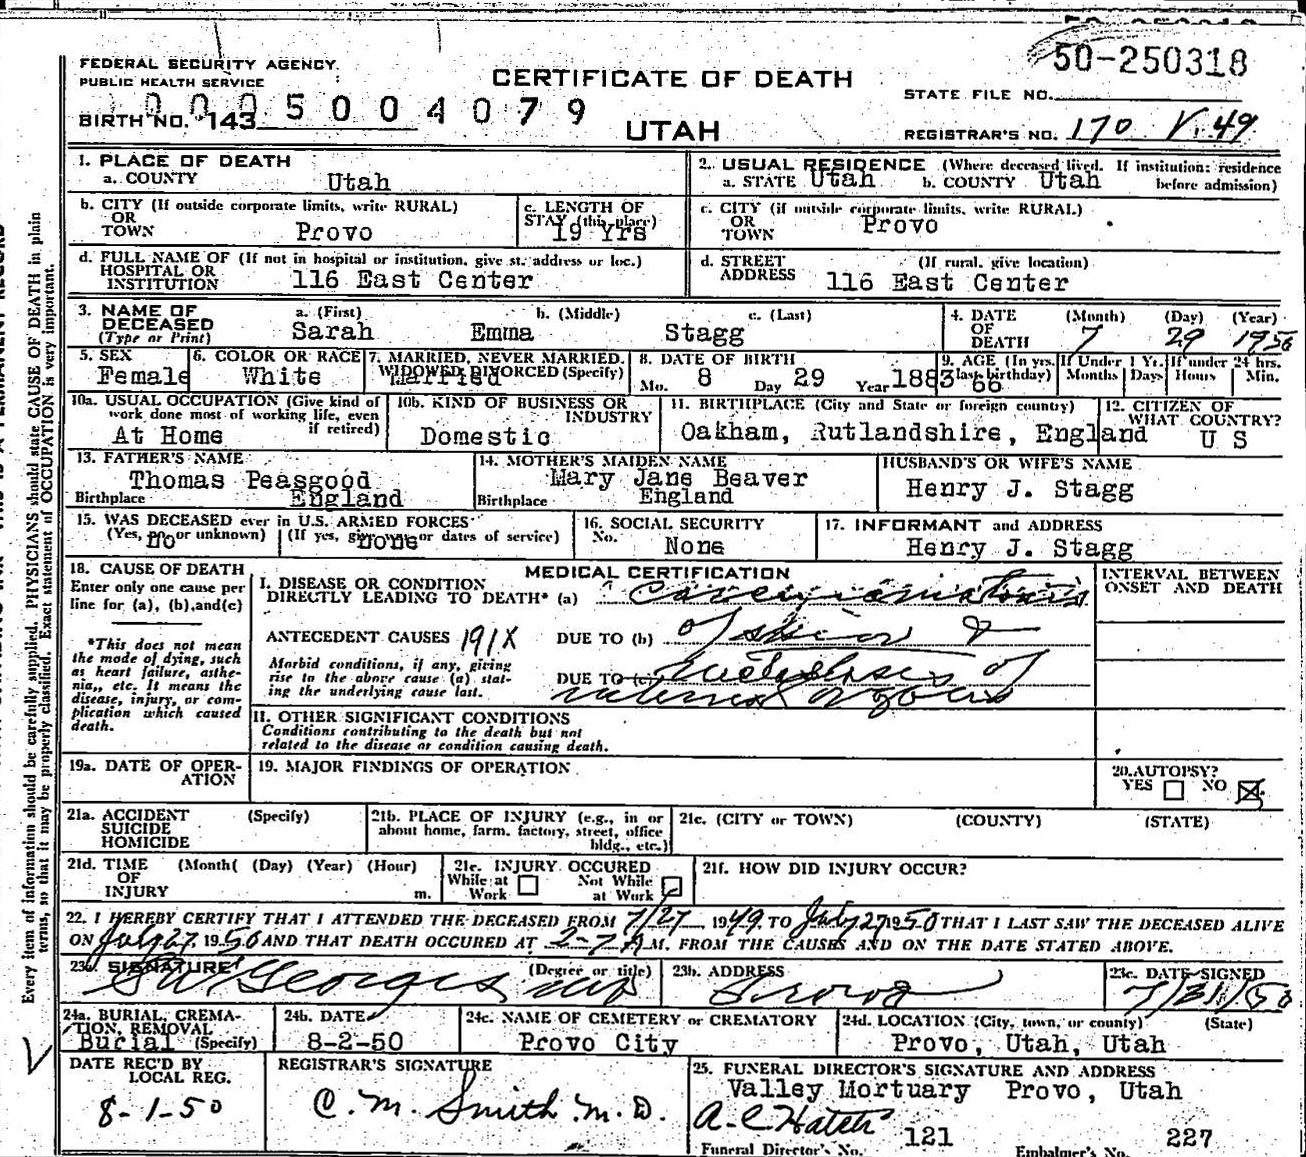 50-250318
FEDERAL SECURITY AGENCY.
PUBLIC HEALTH SERVICE
CERTIFICATE OF DEATH
UTAH
STATE FILE NO.
0005004079
BIRTH NO. 143
REGISTRAR'S NO. 170 V. 49
1. PLACE OF DEATH
a. COUNTY Utah
2. USUAL RESIDENCE (Where deceased lived. If institution: residence before admission)
a. STATE Utah b. COUNTY Utah
b. CITY (If outside corporate limits, write RURAL)
OR
TOWN Provo
c. LENGTH OF
STAY (this place)
19 Yrs
c. CITY (if outside corporate limits, write RURAL)
OR
TOWN Provo
d. FULL NAME OF (If not in hospital or institution, give st. address or loc.)
HOSPITAL OR
INSTITUTION 116 East Center
d. STREET (If rural, give location)
ADDRESS 116 East Center
3. NAME OF
DECEASED
(Type or Print)
a. (First) b. (Middle) c. (Last)
Sarah Emma Stagg
4. DATE
OF
DEATH
(Month) (Day) (Year)
7 29 1950
5. SEX
Female
6. COLOR OR RACE
White
7. MARRIED, NEVER MARRIED,
WIDOWED, DIVORCED (Specify)
Married
8. DATE OF BIRTH
Mo. 8 Day 29 Year 1883
9. AGE (In yrs. last birthday)
66
If Under 1 Yr. If under 24 hrs.
Months Days Hours Min.
10a. USUAL OCCUPATION (Give kind of
work done most of working life, even
if retired)
At Home
10b. KIND OF BUSINESS OR
INDUSTRY
Domestic
11. BIRTHPLACE (City and State or foreign country)
Oakham, Rutlandshire, England
12. CITIZEN OF
WHAT COUNTRY?
U S
13. FATHER'S NAME
Thomas Peasgood
Birthplace England
14. MOTHER'S MAIDEN NAME
Mary Jane Beaver
Birthplace England
HUSBAND'S OR WIFE'S NAME
Henry J. Stagg
15. WAS DECEASED ever in U.S. ARMED FORCES
(Yes, no or unknown) (If yes, give war or dates of service)
no none
16. SOCIAL SECURITY
No. None
17. INFORMANT and ADDRESS
Henry J. Stagg
18. CAUSE OF DEATH
Enter only one cause per
line for (a), (b), and (c)
*This does not mean
the mode of dying, such
as heart failure, asthe-
nia,, etc. It means the
disease, injury, or com-
plication which caused
death.
MEDICAL CERTIFICATION
I. DISEASE OR CONDITION
DIRECTLY LEADING TO DEATH* (a)
ANTECEDENT CAUSES 191X DUE TO (b) of skin &
Morbid conditions, if any, giving
rise to the above cause (a) stat-
ing the underlying cause last.
DUE TO (c) of
organs
INTERVAL BETWEEN
ONSET AND DEATH
II. OTHER SIGNIFICANT CONDITIONS
Conditions contributing to the death but not
related to the disease or condition causing death.
19a. DATE OF OPER-
ATION
19. MAJOR FINDINGS OF OPERATION
20. AUTOPSY?
YES NO
21a. ACCIDENT (Specify)
SUICIDE
HOMICIDE
21b. PLACE OF INJURY (e.g., in or
about home, farm, factory, street, office
bldg., etc.)
21c. (CITY or TOWN) (COUNTY) (STATE)
21d. TIME (Month( (Day) (Year) (Hour)
OF
INJURY m.
21e. INJURY OCCURED
While at Work Not While at Work
21f. HOW DID INJURY OCCUR?
22. I HEREBY CERTIFY THAT I ATTENDED THE DECEASED FROM 7/27 1949 TO July 27 1950 THAT I LAST SAW THE DECEASED ALIVE
ON July 27 1950 AND THAT DEATH OCCURED AT 2-7 A M. FROM THE CAUSES AND ON THE DATE STATED ABOVE.
SIGNATURE (Degree or title)
Georges MD
23b. ADDRESS
Provo
23c. DATE SIGNED
7/31/50
24a. BURIAL, CREMA-
TION, REMOVAL
Burial (Specify)
24b. DATE
8-2-50
24c. NAME OF CEMETERY or CREMATORY
Provo City
24d. LOCATION (City, town, or county) (State)
Provo, Utah, Utah
DATE REC'D BY
LOCAL REG.
8-1-50
REGISTRAR'S SIGNATURE
C. M. Smith M. D.
25. FUNERAL DIRECTOR'S SIGNATURE AND ADDRESS
Valley Mortuary Provo, Utah
A. C. Hatch
Funeral Director's No. 121 Embalmer's No. 227
Every item of information should be carefully supplied. PHYSICIANS should state CAUSE OF DEATH in plain
terms, so that it may be properly classified. Exact statement of OCCUPATION is very important.